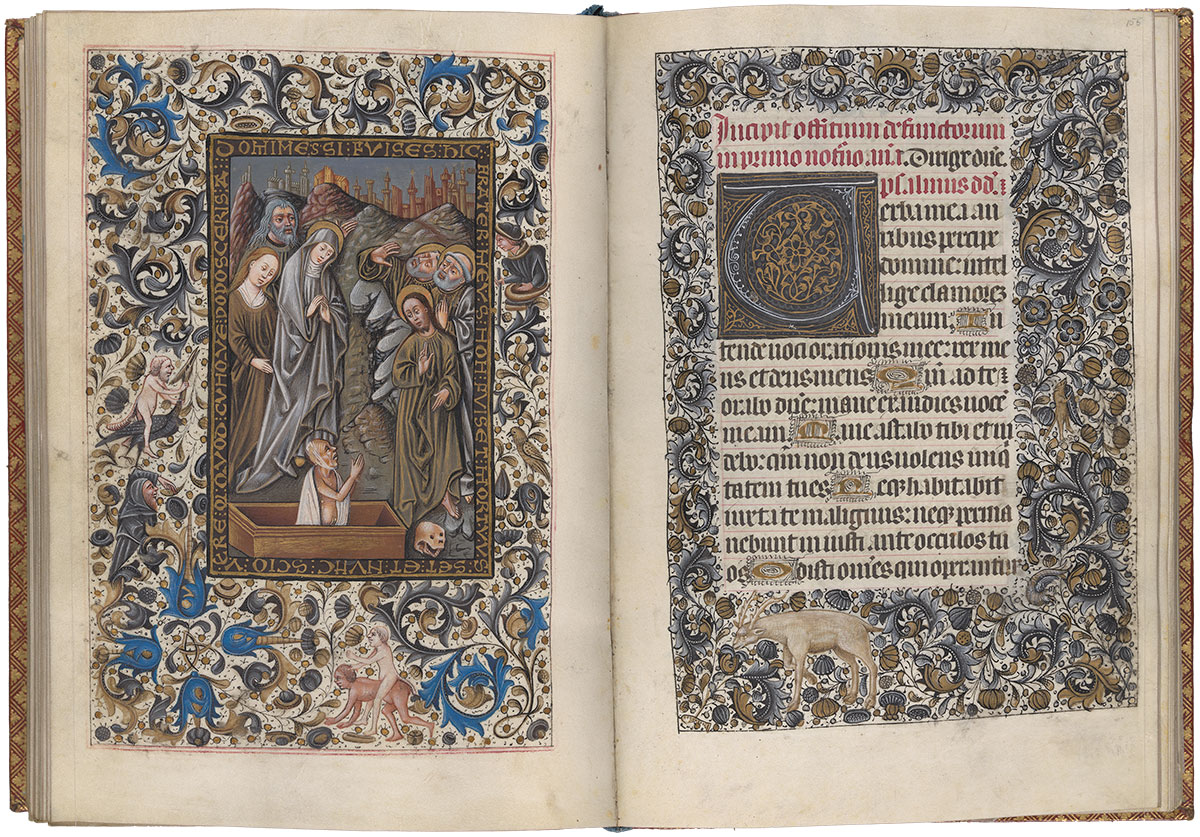 DOMINE SSI FVISES HIC
FRATER MEVS NON FVISET MORTVVS
SET ET NVNC SCIO
QVOD CVMQVE POPOSCERIS A
155
Incipit offitium defunctorum
in primo noct'no. an.t. Dirige dñe.
psalmus dd.
Verba mea au
ribus percipe
domine: intel
lige clamorez
meum. In
tende voci orationis mee: rex me
us et deus meus. Qm̃ ad te
orabo dñe: mane exaudies vocẽ
meam. Mane astabo tibi et vi
debo: qm̃ non deus volens iniq̃
tatem tu es. Neq; habitabit
iuxta te malignus: neque perma
nebunt iniusti ante occulos tu
os. Odisti omẽs qui operantur